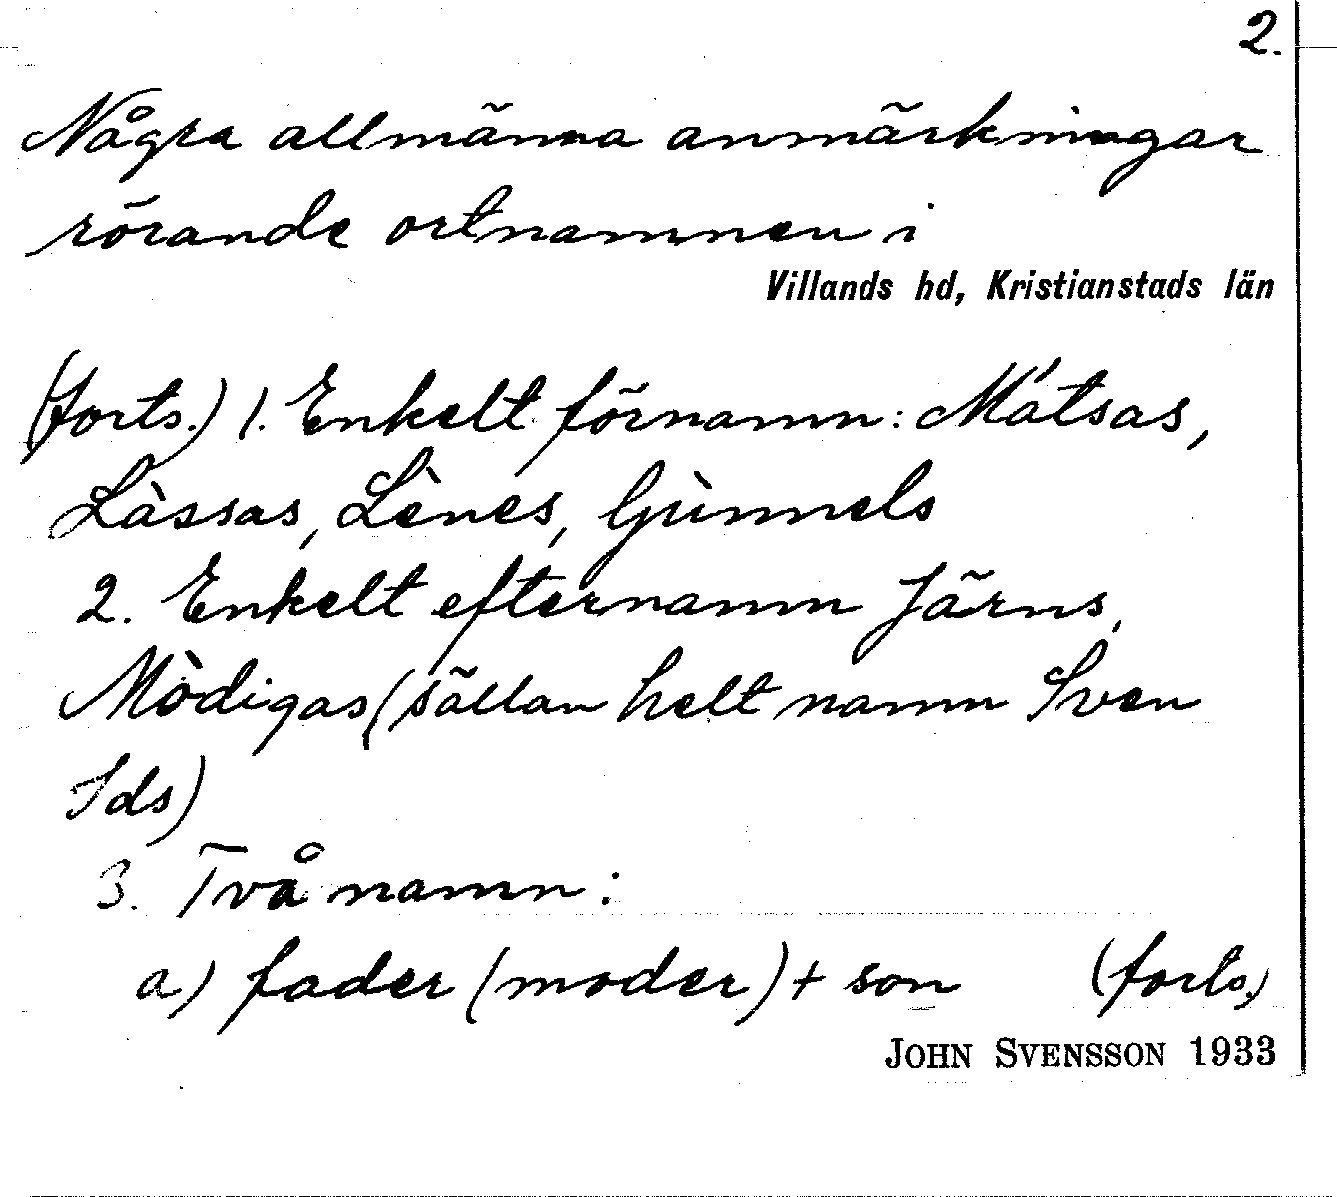 2.
Några allmänna anmärkningar
rörande ortnamnen i
Villands hd, Kristianstads län
(forts.) 1. Enkelt förnamn: Mátsas,
Làssas, Lènes, Gùnnels
2. Enkelt efternamn Järns,
Mòdigas (sällan helt namn Sven
Ids)
3. Två namn:
a) fader (moder) + son (forts.)
JOHN SVENSSON 1933